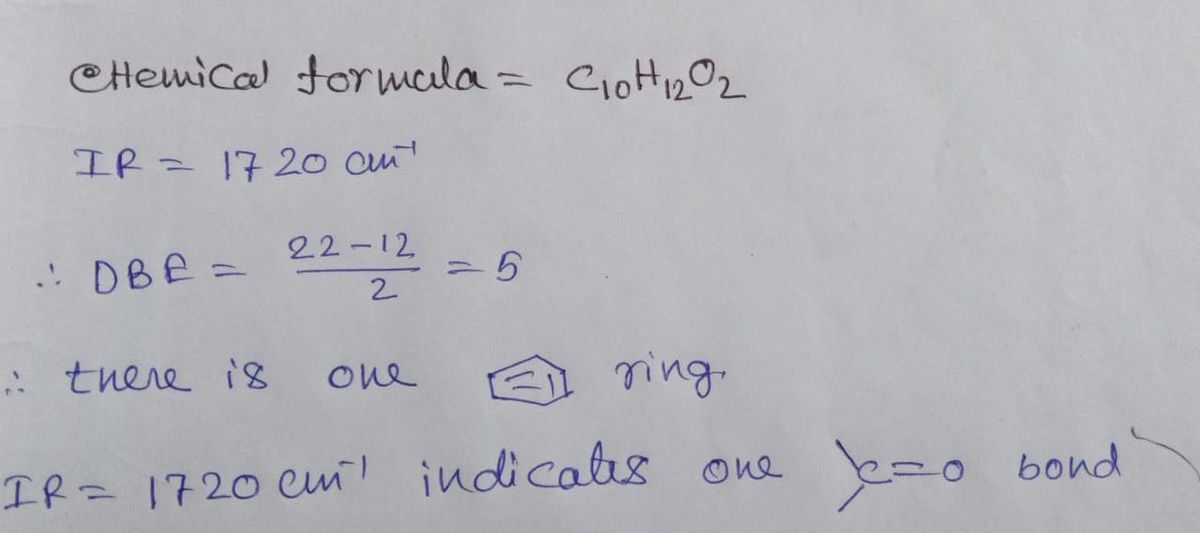 Chemical formula = C₁₀H₁₂O₂
IR = 1720 cm⁻¹
∴ DBE = 22-12 / 2 = 5
∴ there is one ring.
IR = 1720 cm⁻¹ indicates one >c=o bond